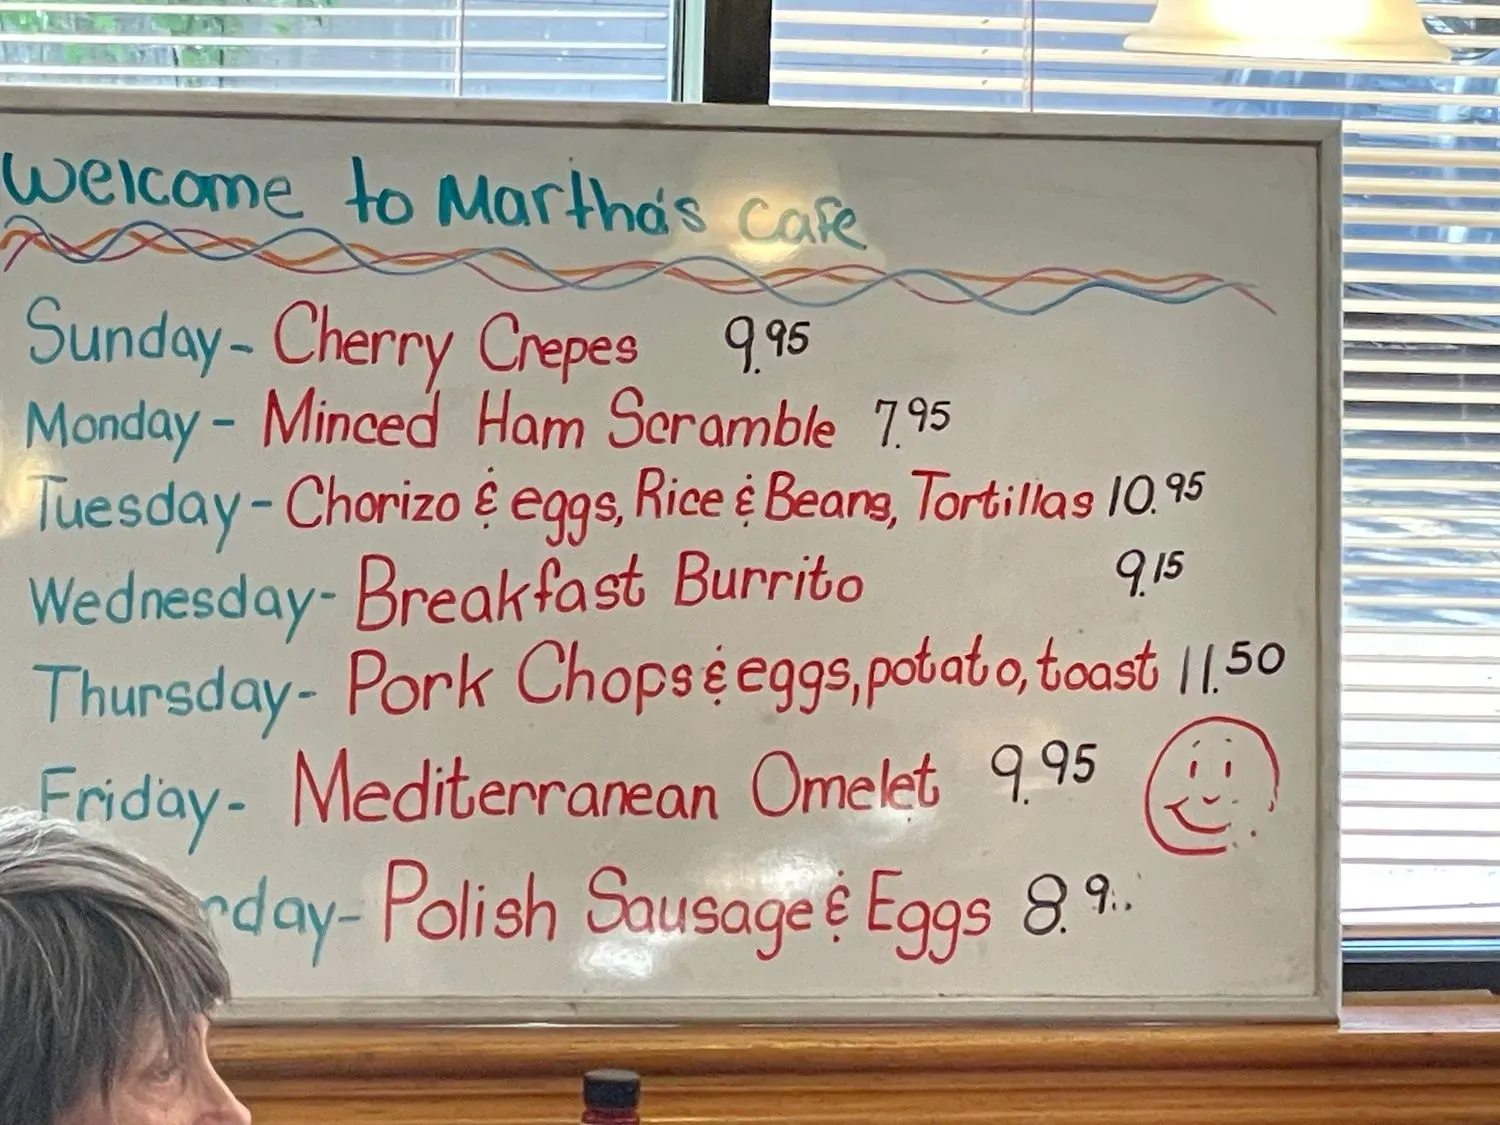 Welcome to Martha's Cafe
Sunday- Cherry Crepes 9.95
Monday- Minced Ham Scramble 7.95
Tuesday- Chorizo & eggs, Rice & Beans, Tortillas 10.95
Wednesday- Breakfast Burrito 9.15
Thursday- Pork Chops & eggs, potato, toast 11.50
Friday- Mediterranean Omelet 9.95
Polish Sausage & Eggs